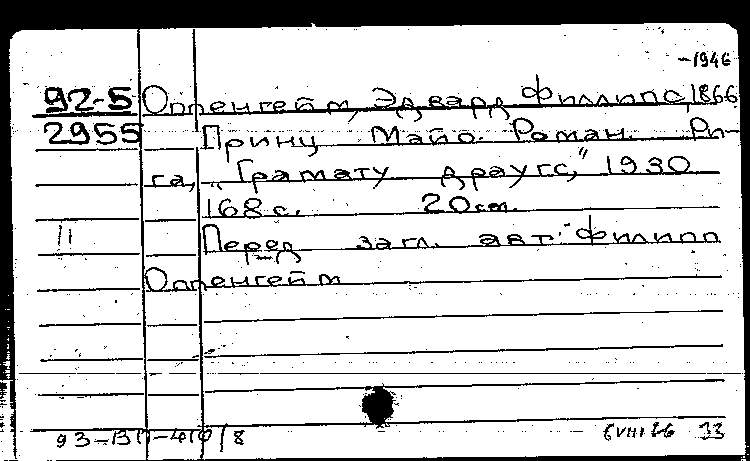 -1946
92-5 Оппенгейм, Эдвард Филлипс, 1866
2955 Принц Майо. Роман. Ри-
га, "Грамату драугс," 1930
168 с. 20 см.
|| Перед загл. авт: Филипп
Оппенгейм
93-ВП-410/8 33